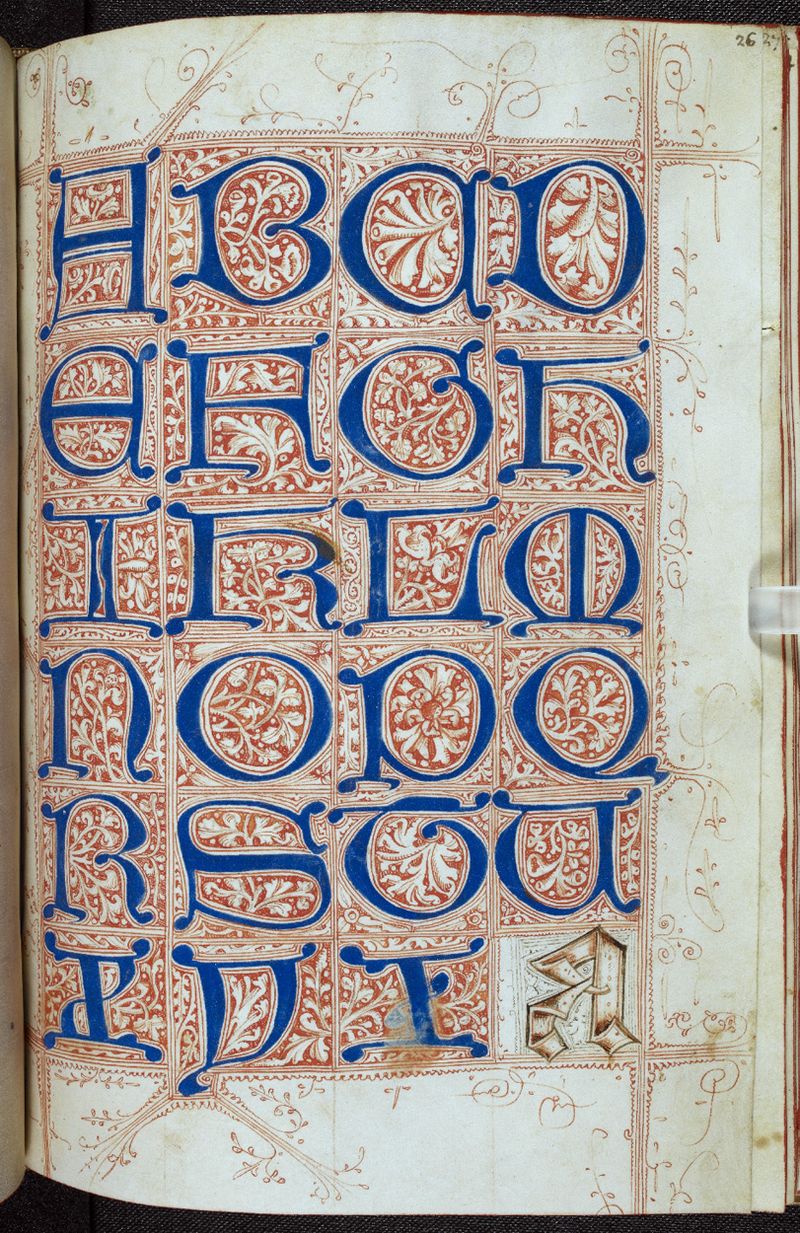 26 27
A B C D
E F G H
I K L M
N O P Q
R S T U
X Y Z A